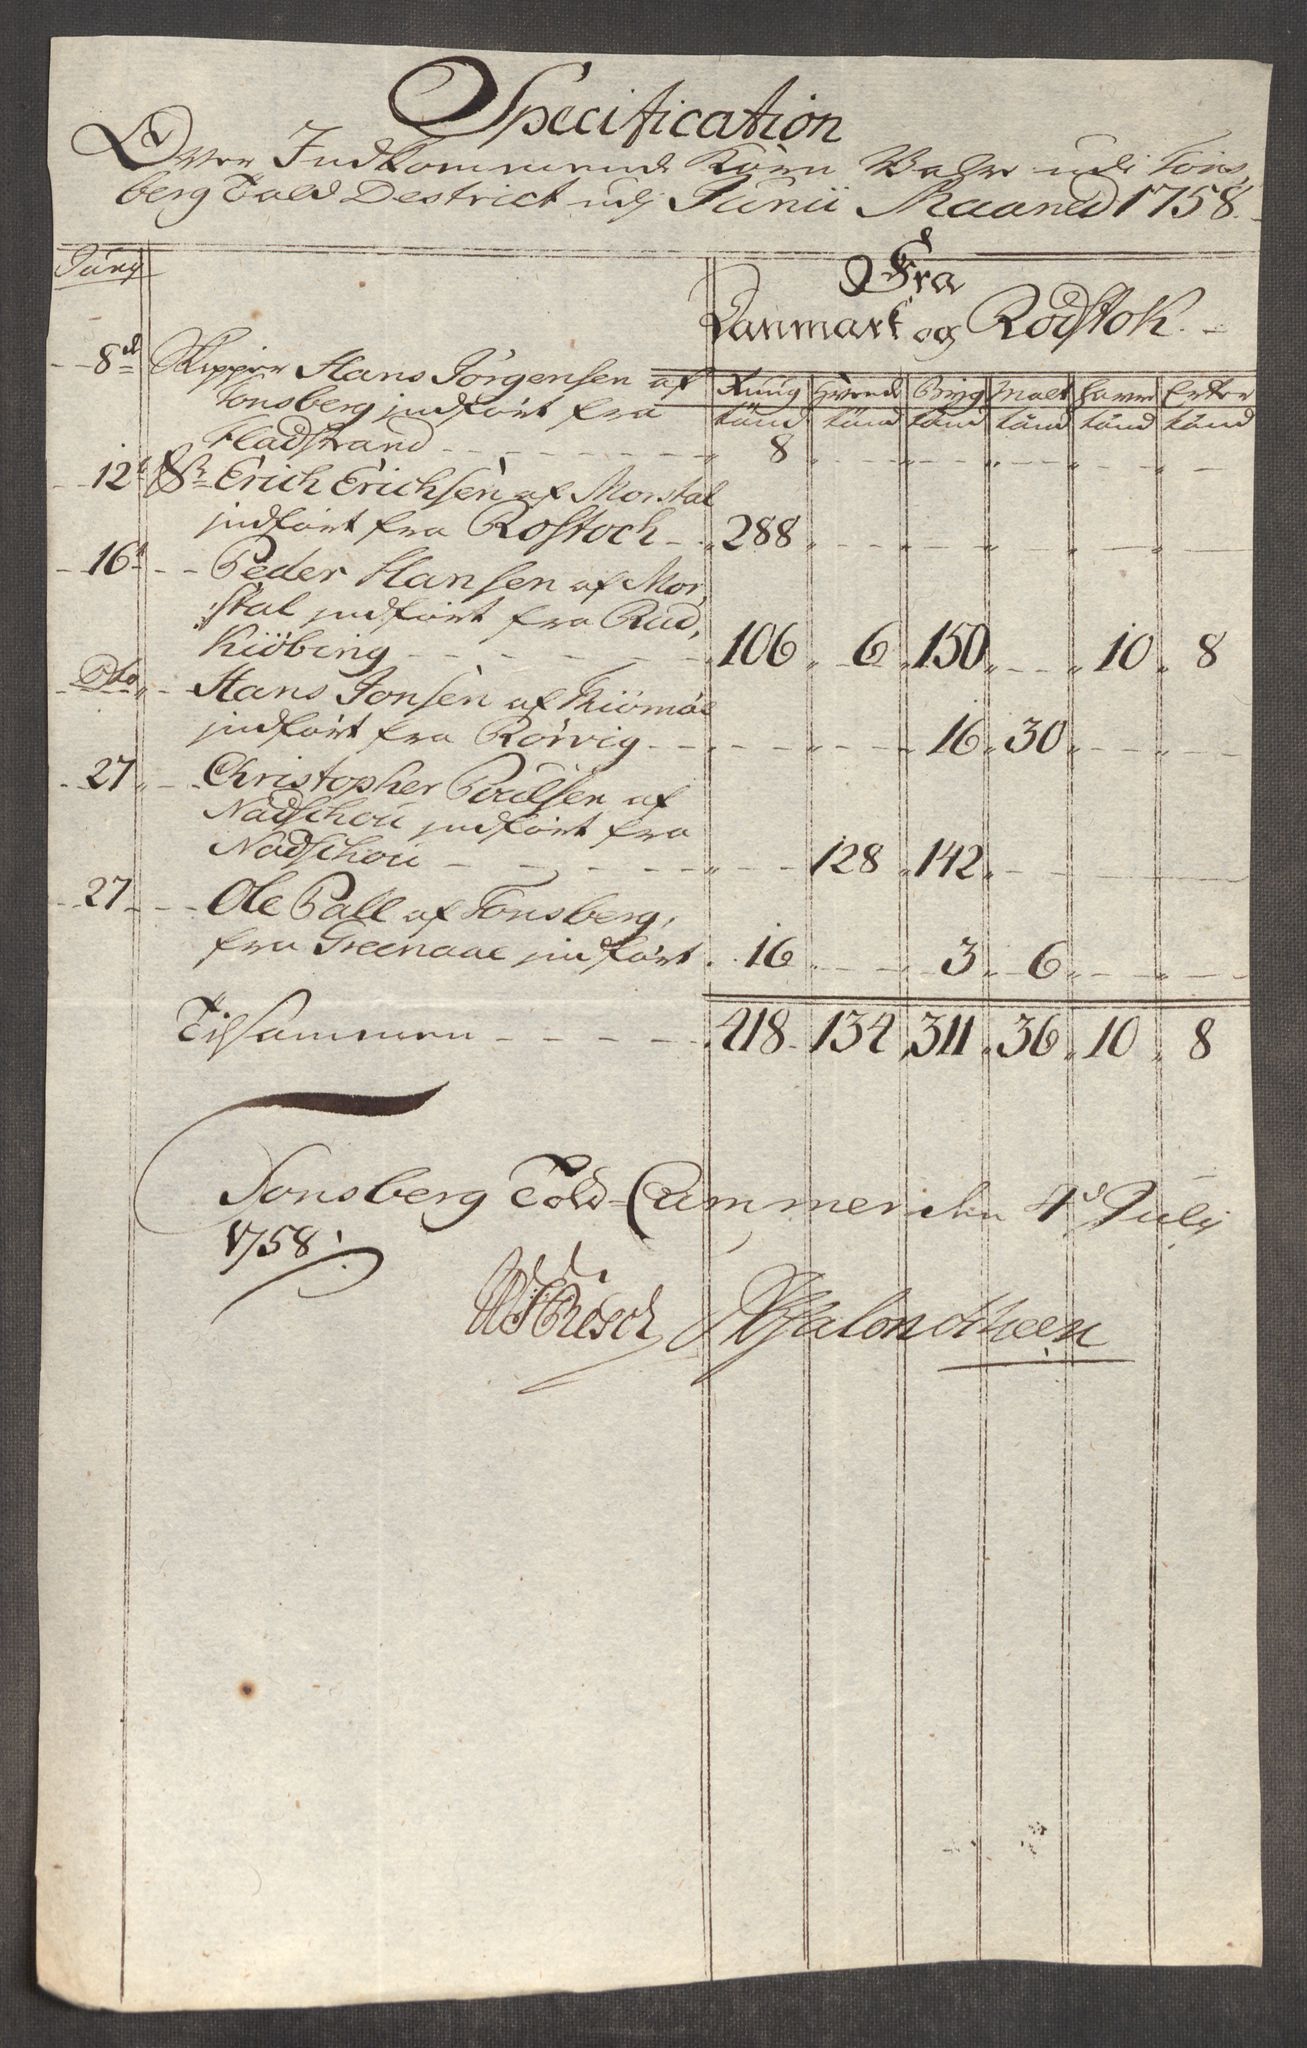 Specification
Over Indkommende Korn Vahre udi Töns,
berg Told Destrict udj Junii Maaned 1758.
Junij
Fra
Danmark og Rodstok.
Rung Hvede Byg Malt Havre Erter
tönd tönd tönd tönd tönd tönd
8d Skipper Hans Jörgensen af
Tonsberg indfört fra
Fladstrand 8
12t Sr Erich Erichsen af Morstal
indfört fra Rostoch 288
16t Peder Hansen af Mor,
stal indfört fra Rud,
Kiöbing 106 6 150 10 8
Dto Hans Jonsen af Tiömöe
indfört fra Rörvig 16 30
27 Christopher Poulsen af
Nadschou indfört fra
Nadschou 128 142
27 Ole Pall af Tonsberg,
fra Greenaae indfört 16 3 6
Tilsammen 418 134 311 36 10 8
Tonsberg Told-Cammer den 4d Julij
1758.